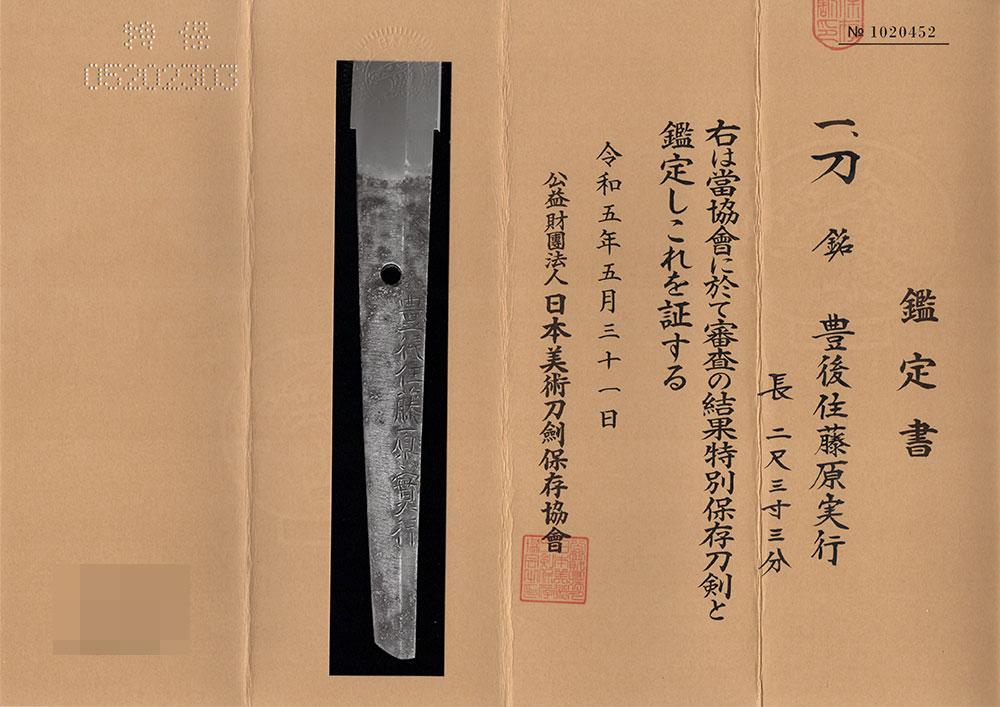 № 1020452
鑑定書
一、刀 銘 豊後住藤原実行
長 二尺三寸三分
右は當協會に於て審査の結果特別保存刀剣と
鑑定しこれを証する
令和五年五月三十一日
公益財團法人 日本美術刀劍保存協會
豊後住藤原實行
特保
05202303